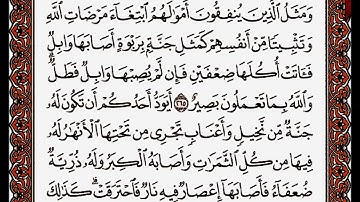 وَمَثَلُ ٱلَّذِينَ يُنفِقُونَ أَمۡوَٰلَهُمُ ٱبۡتِغَآءَ مَرۡضَاتِ ٱللَّهِ
وَتَثۡبِيتٗا مِّنۡ أَنفُسِهِمۡ كَمَثَلِ جَنَّةِۭ بِرَبۡوَةٍ أَصَابَهَا وَابِلٞ
فَـَٔاتَتۡ أُكُلَهَا ضِعۡفَيۡنِ فَإِن لَّمۡ يُصِبۡهَا وَابِلٞ فَطَلّٞۗ
وَٱللَّهُ بِمَا تَعۡمَلُونَ بَصِيرٌ ٢٦٥ أَيَوَدُّ أَحَدُكُمۡ أَن تَكُونَ لَهُۥ
جَنَّةٞ مِّن نَّخِيلٖ وَأَعۡنَابٖ تَجۡرِي مِن تَحۡتِهَا ٱلۡأَنۡهَٰرُ لَهُۥ
فِيهَا مِن كُلِّ ٱلثَّمَرَٰتِ وَأَصَابَهُ ٱلۡكِبَرُ وَلَهُۥ ذُرِّيَّةٞ
ضُعَفَآءُ فَأَصَابَهَآ إِعۡصَارٞ فِيهِ نَارٞ فَٱحۡتَرَقَتۡۗ كَذَٰلِكَ